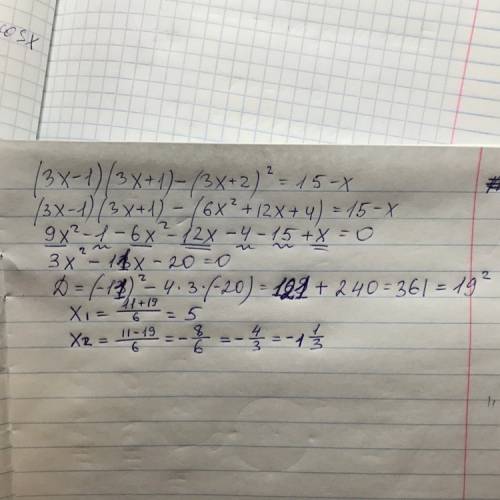 cosx
(3x-1)(3x+1)-(3x+2)²=15-x
(3x-1)(3x+1)-(6x²+12x+4)=15-x
9x²-1-6x²-12x-4-15+x=0
3x²-11x-20=0
D=(-11)²-4·3·(-20)=121+240=361=19²
x₁=\frac{11+19}{6}=5
x₂=\frac{11-19}{6}=-\frac{8}{6}=-\frac{4}{3}=-1\frac{1}{3}